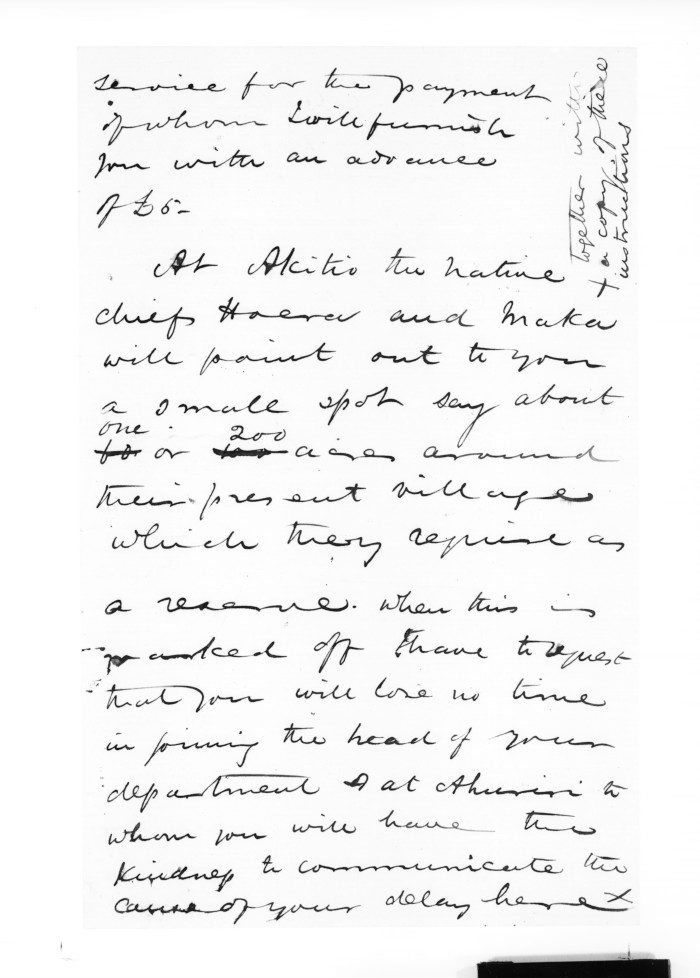 service for the payment
of whom I will furnish
you with an advance
of £5-
At Akitio the native
chiefs Hoera and Maka
will point out to you
a small spot say about
one 200
or acres around
their present village
which they require as
a reserve. When this is
marked off I have to request
that you will lose no time
in joining the head of your
department at Ahuriri to
whom you will have the
kindness to communicate the
cause of your delay here X
X together with
a copy of these
instructions